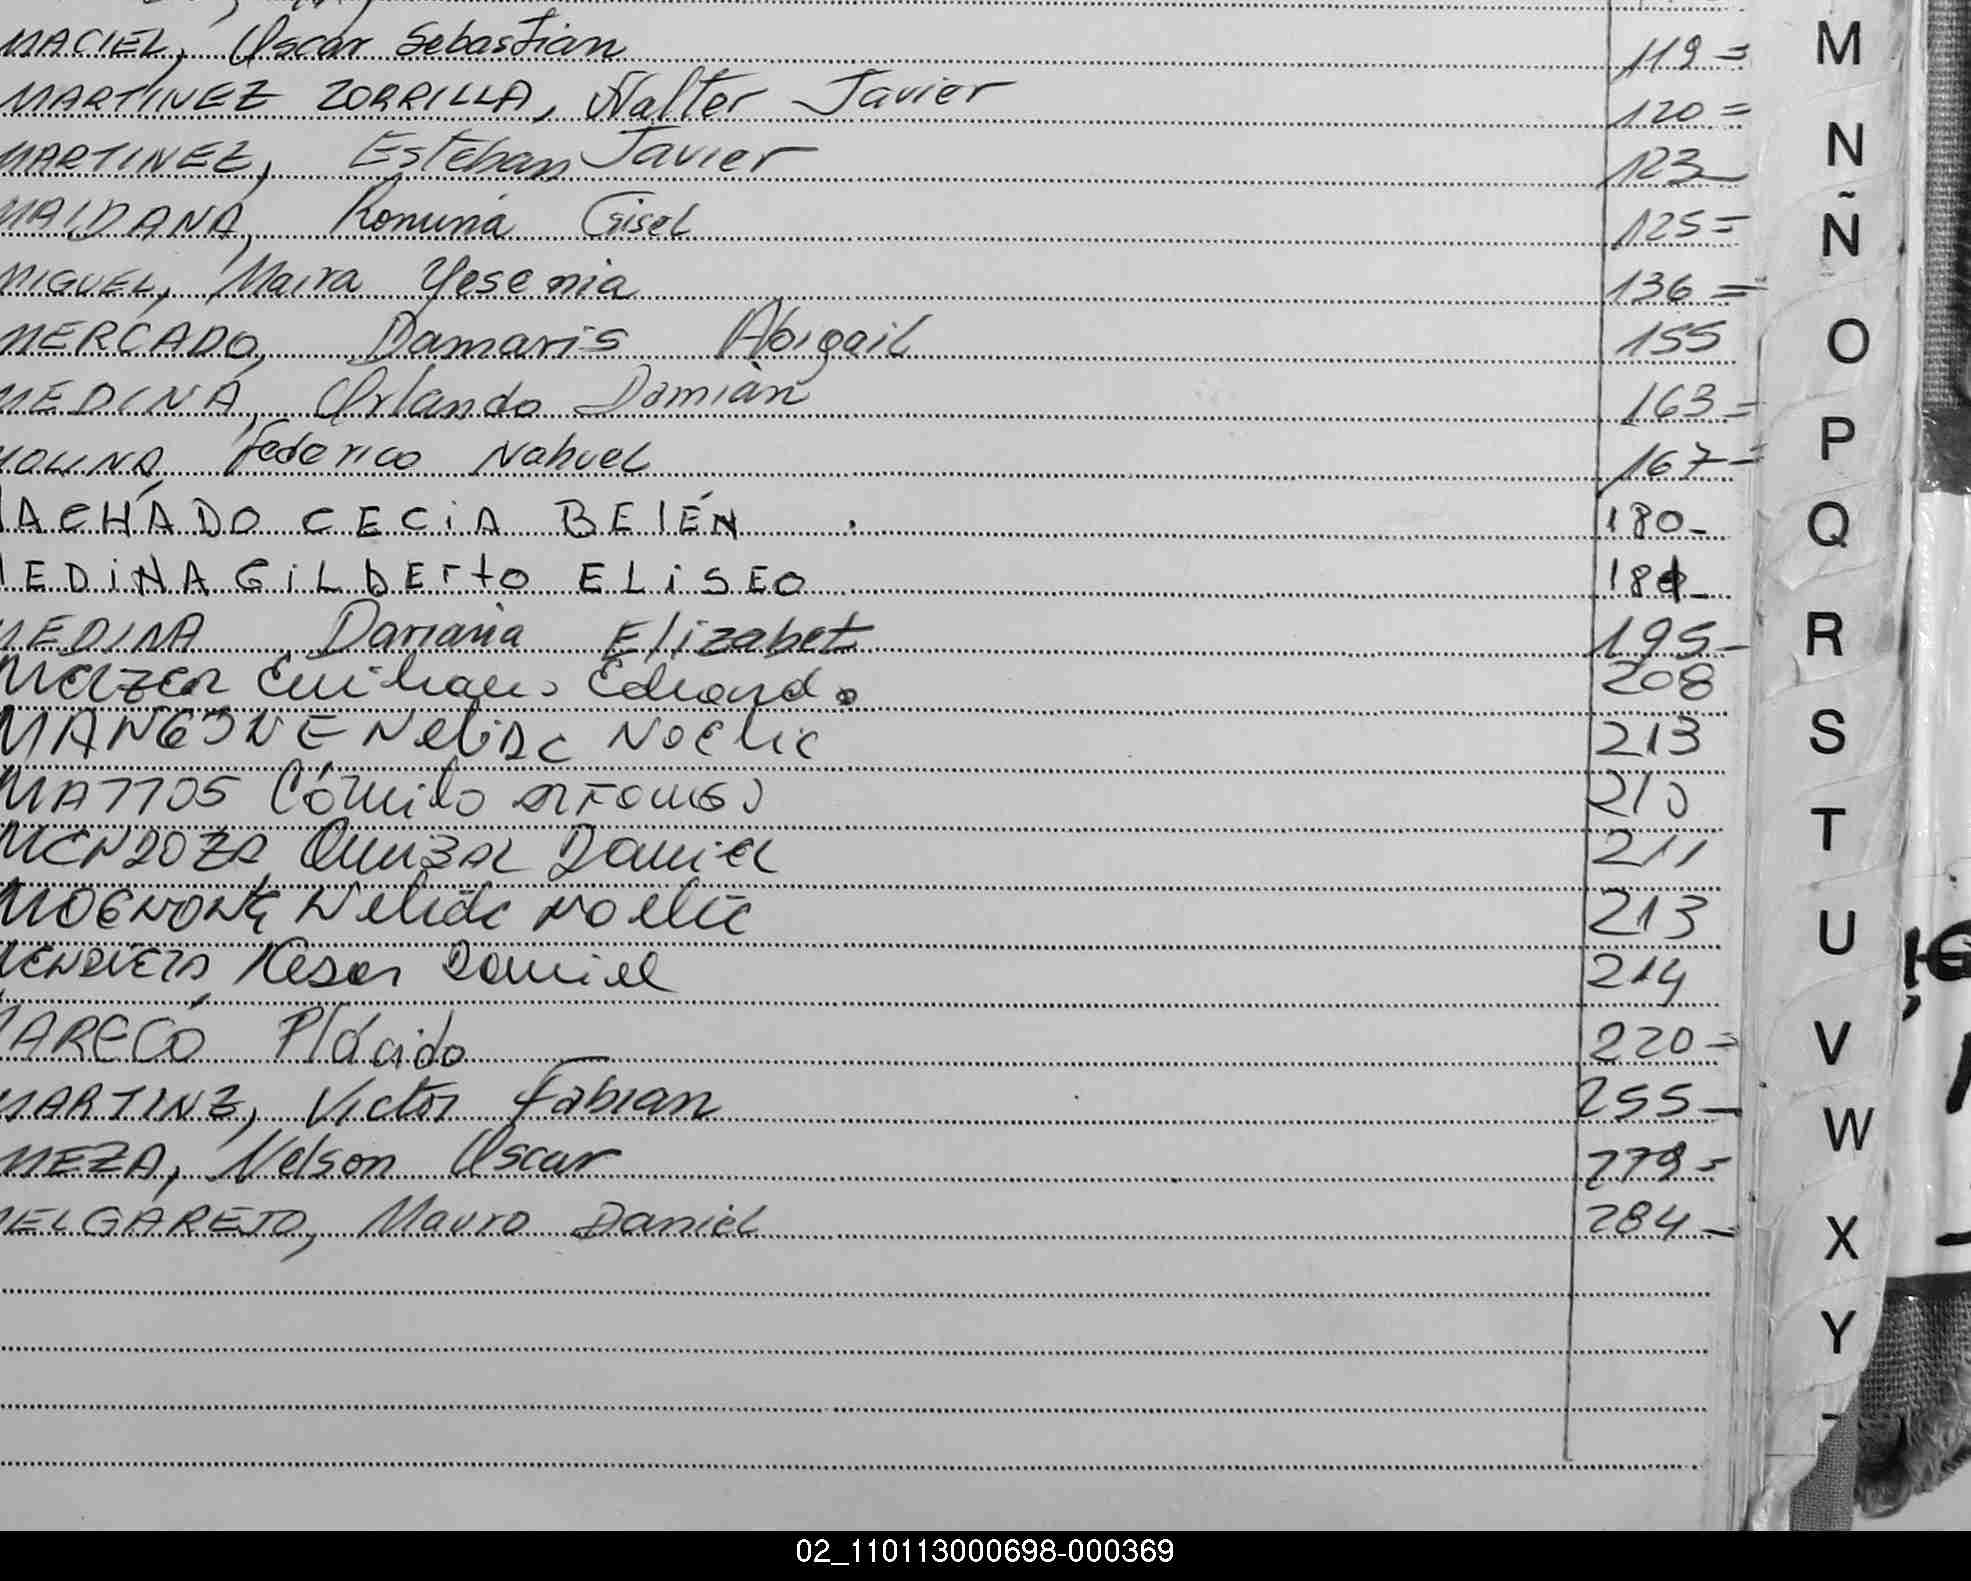 MACIEL, Oscar Sebastian 119=
MARTINEZ ZORRILLA, Walter Javier 120=
MARTINEZ, Esteban Javier 123-
MALDANA, Romina Gisel 125=
MIGUEL, Maira Yesenia 136=
MERCADO, Damaris Abigail 155
MEDINA, Orlando Damián 163=
MOLINA, Federico Nahuel 167=
MACHADO CECIA BELÉN 180-
MEDINA GILBErto ELISEO 181-
MEDINA Dariana Elizabet 195-
Emiliano Eduardo 208
MANGONE Nelida Noelia 213
MATTOS Camilo 210
MENDOZA Daniel 211
Nelida Noelia 213
MENDIETA Cesar Daniel 214
MARECO Plácido 220=
MARTINZ, Victor Fabian 255-
MEZA, Nelson Oscar 279=
MELGAREJO, Mauro Daniel 284-
M
N
Ñ
O
P
Q
R
S
T
U
V
W
X
Y
02_110113000698-000369